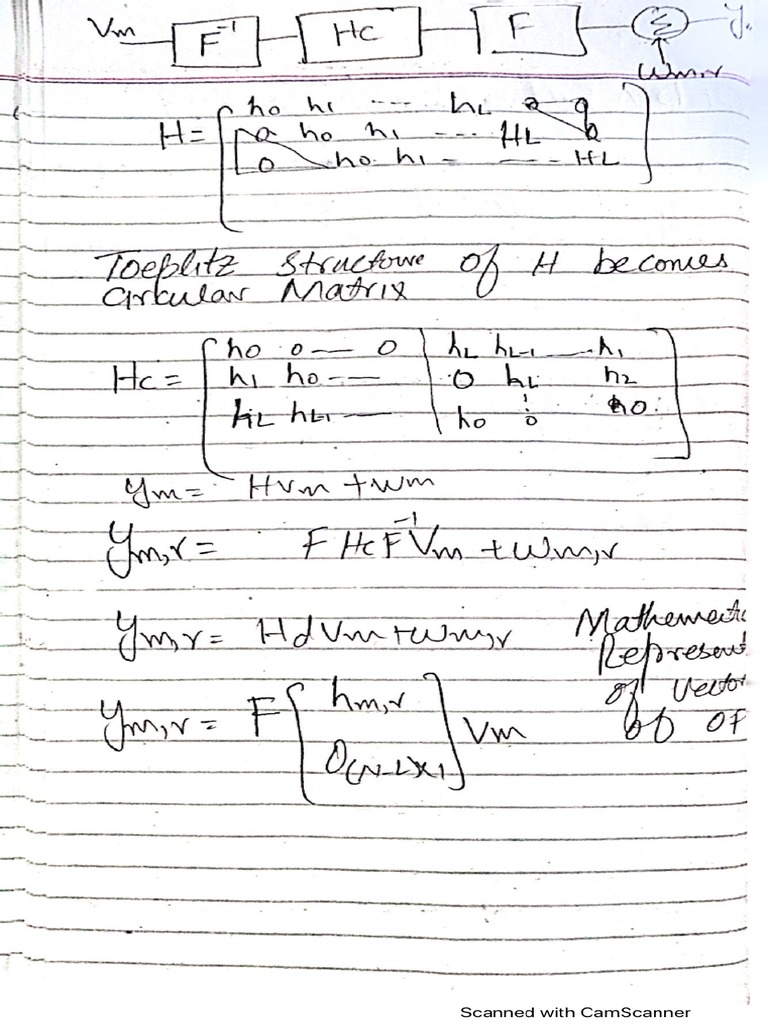 Vm F⁻¹ Hc F Σ y
Wm,r
H = [ h0 h1 ---- hL 0 0
0 h0 h1 --- HL 0
0 h0 h1 - --- HL ]
Toeplitz Structure of H becomes
Circular Matrix
Hc = [ h0 0 — 0 | hL hL-1 — h1
h1 h0 --- | 0 hL h2
hL hL1 — | h0 0 h0 ]
ym = Hvm + wm
ym,r = F Hc F⁻¹ Vm + wm,r
ym,r = Hd Vm + wm,r
Mathemati
Represent
of Vector
of OF
ym,r = F [ hm,r
O(N-L)x1 ] Vm
Scanned with CamScanner